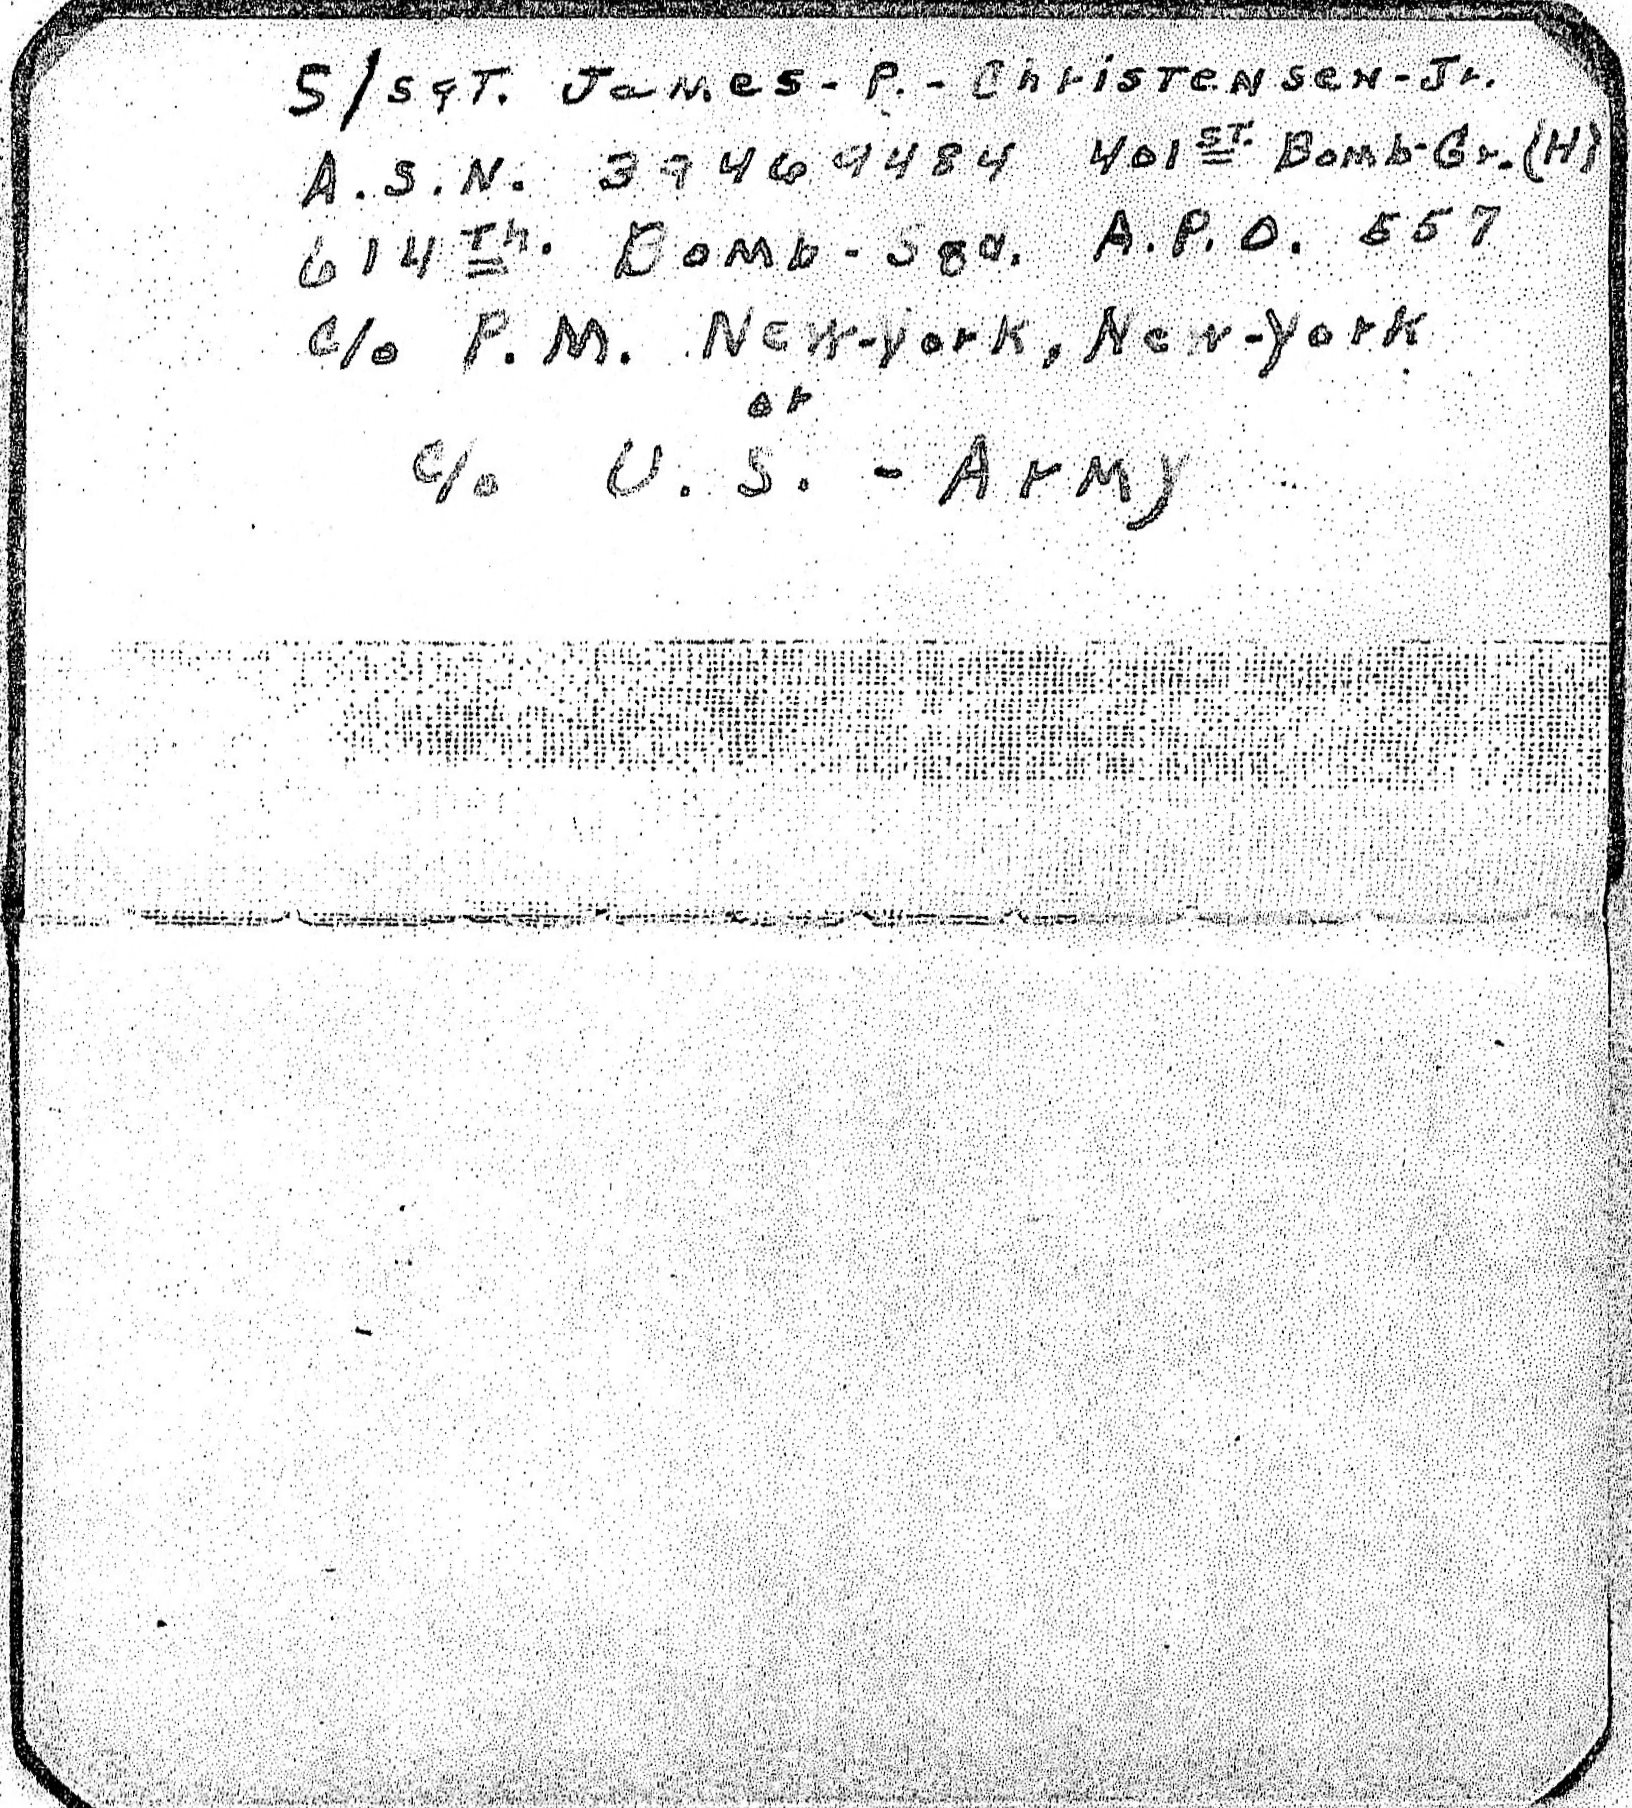 S/SgT. James-P.-Christensen-Jr.
A.S.N. 39469484 401ST. Bomb-Gr.(H)
614Th. Bomb-Sqd. A.P.O. 557
c/o P.M. New-york, New-york
or
c/o U.S.-Army